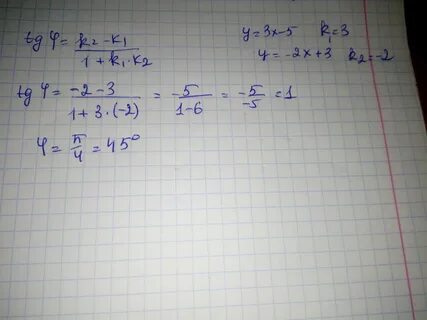 tg φ = k₂ - k₁ / 1 + k₁ · k₂
y = 3x - 5 k₁ = 3
y = -2x + 3 k₂ = -2
tg φ = -2 - 3 / 1 + 3 · (-2) = -5 / 1 - 6 = -5 / -5 = 1
φ = π / 4 = 45°